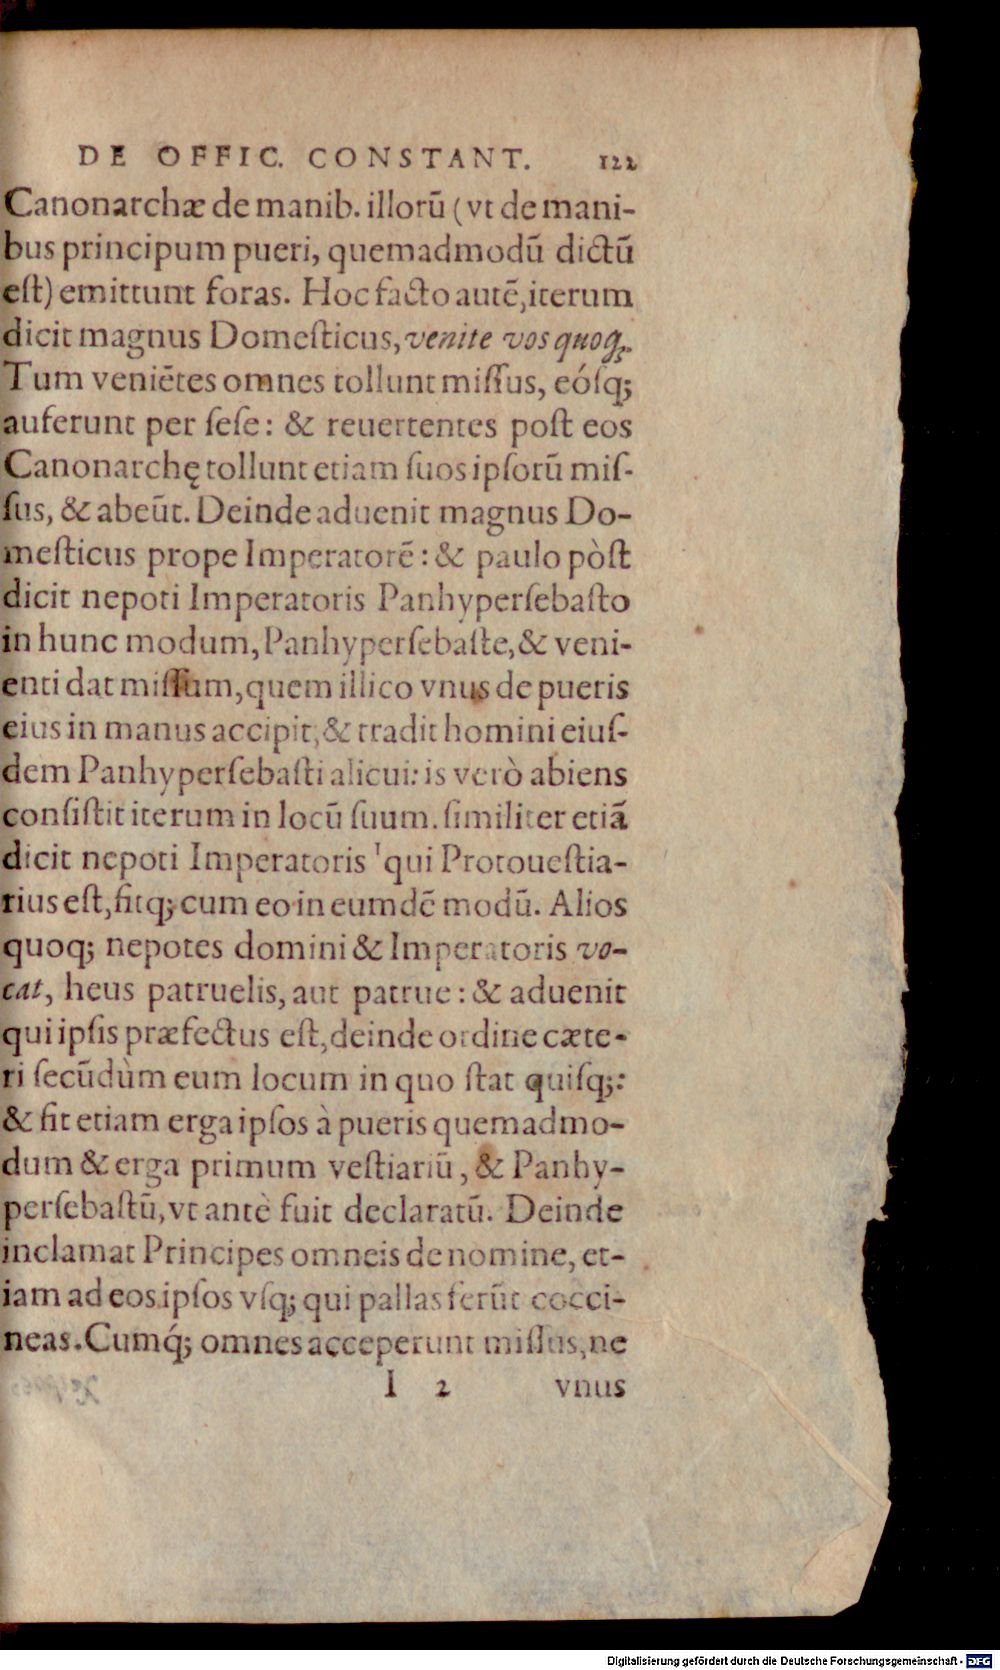 DE OFFIC. CONSTANT. 122
Canonarchæ de manib. illorū (vt de mani-
bus principum pueri, quemadmodū dictū
eſt) emittunt foras. Hoc facto autē, iterum
dicit magnus Domeſticus, venite vos quoq;.
Tum veniētes omnes tollunt miſſus, eóſq;
auferunt per ſeſe: & reuertentes poſt eos
Canonarchę tollunt etiam ſuos ipſorū miſ-
ſus, & abeūt. Deinde aduenit magnus Do-
meſticus prope Imperatorē: & paulo pòſt
dicit nepoti Imperatoris Panhyperſebaſto
in hunc modum, Panhyperſebaſte, & veni-
enti dat miſſum, quem illico vnus de pueris
eius in manus accipit, & tradit homini eiuſ-
dem Panhyperſebaſti alicui: is verò abiens
conſiſtit iterum in locū ſuum. ſimiliter etiā
dicit nepoti Imperatoris qui Protoueſtia-
rius eſt, fitq; cum eo in eumdē modū. Alios
quoq; nepotes domini & Imperatoris vo-
cat, heus patruelis, aut patrue: & aduenit
qui ipſis præfectus eſt, deinde ordine cæte-
ri ſecūdùm eum locum in quo ſtat quiſq;:
& fit etiam erga ipſos à pueris quemadmo-
dum & erga primum veſtiariū, & Panhy-
perſebaſtū, vt antè fuit declaratū. Deinde
inclamat Principes omneis de nomine, et-
iam ad eos ipſos vſq; qui pallas ferūt cocci-
neas. Cumq́; omnes acceperunt miſſus, ne
I 2 vnus
Digitalisierung gefördert durch die Deutsche Forschungsgemeinschaft - DFG